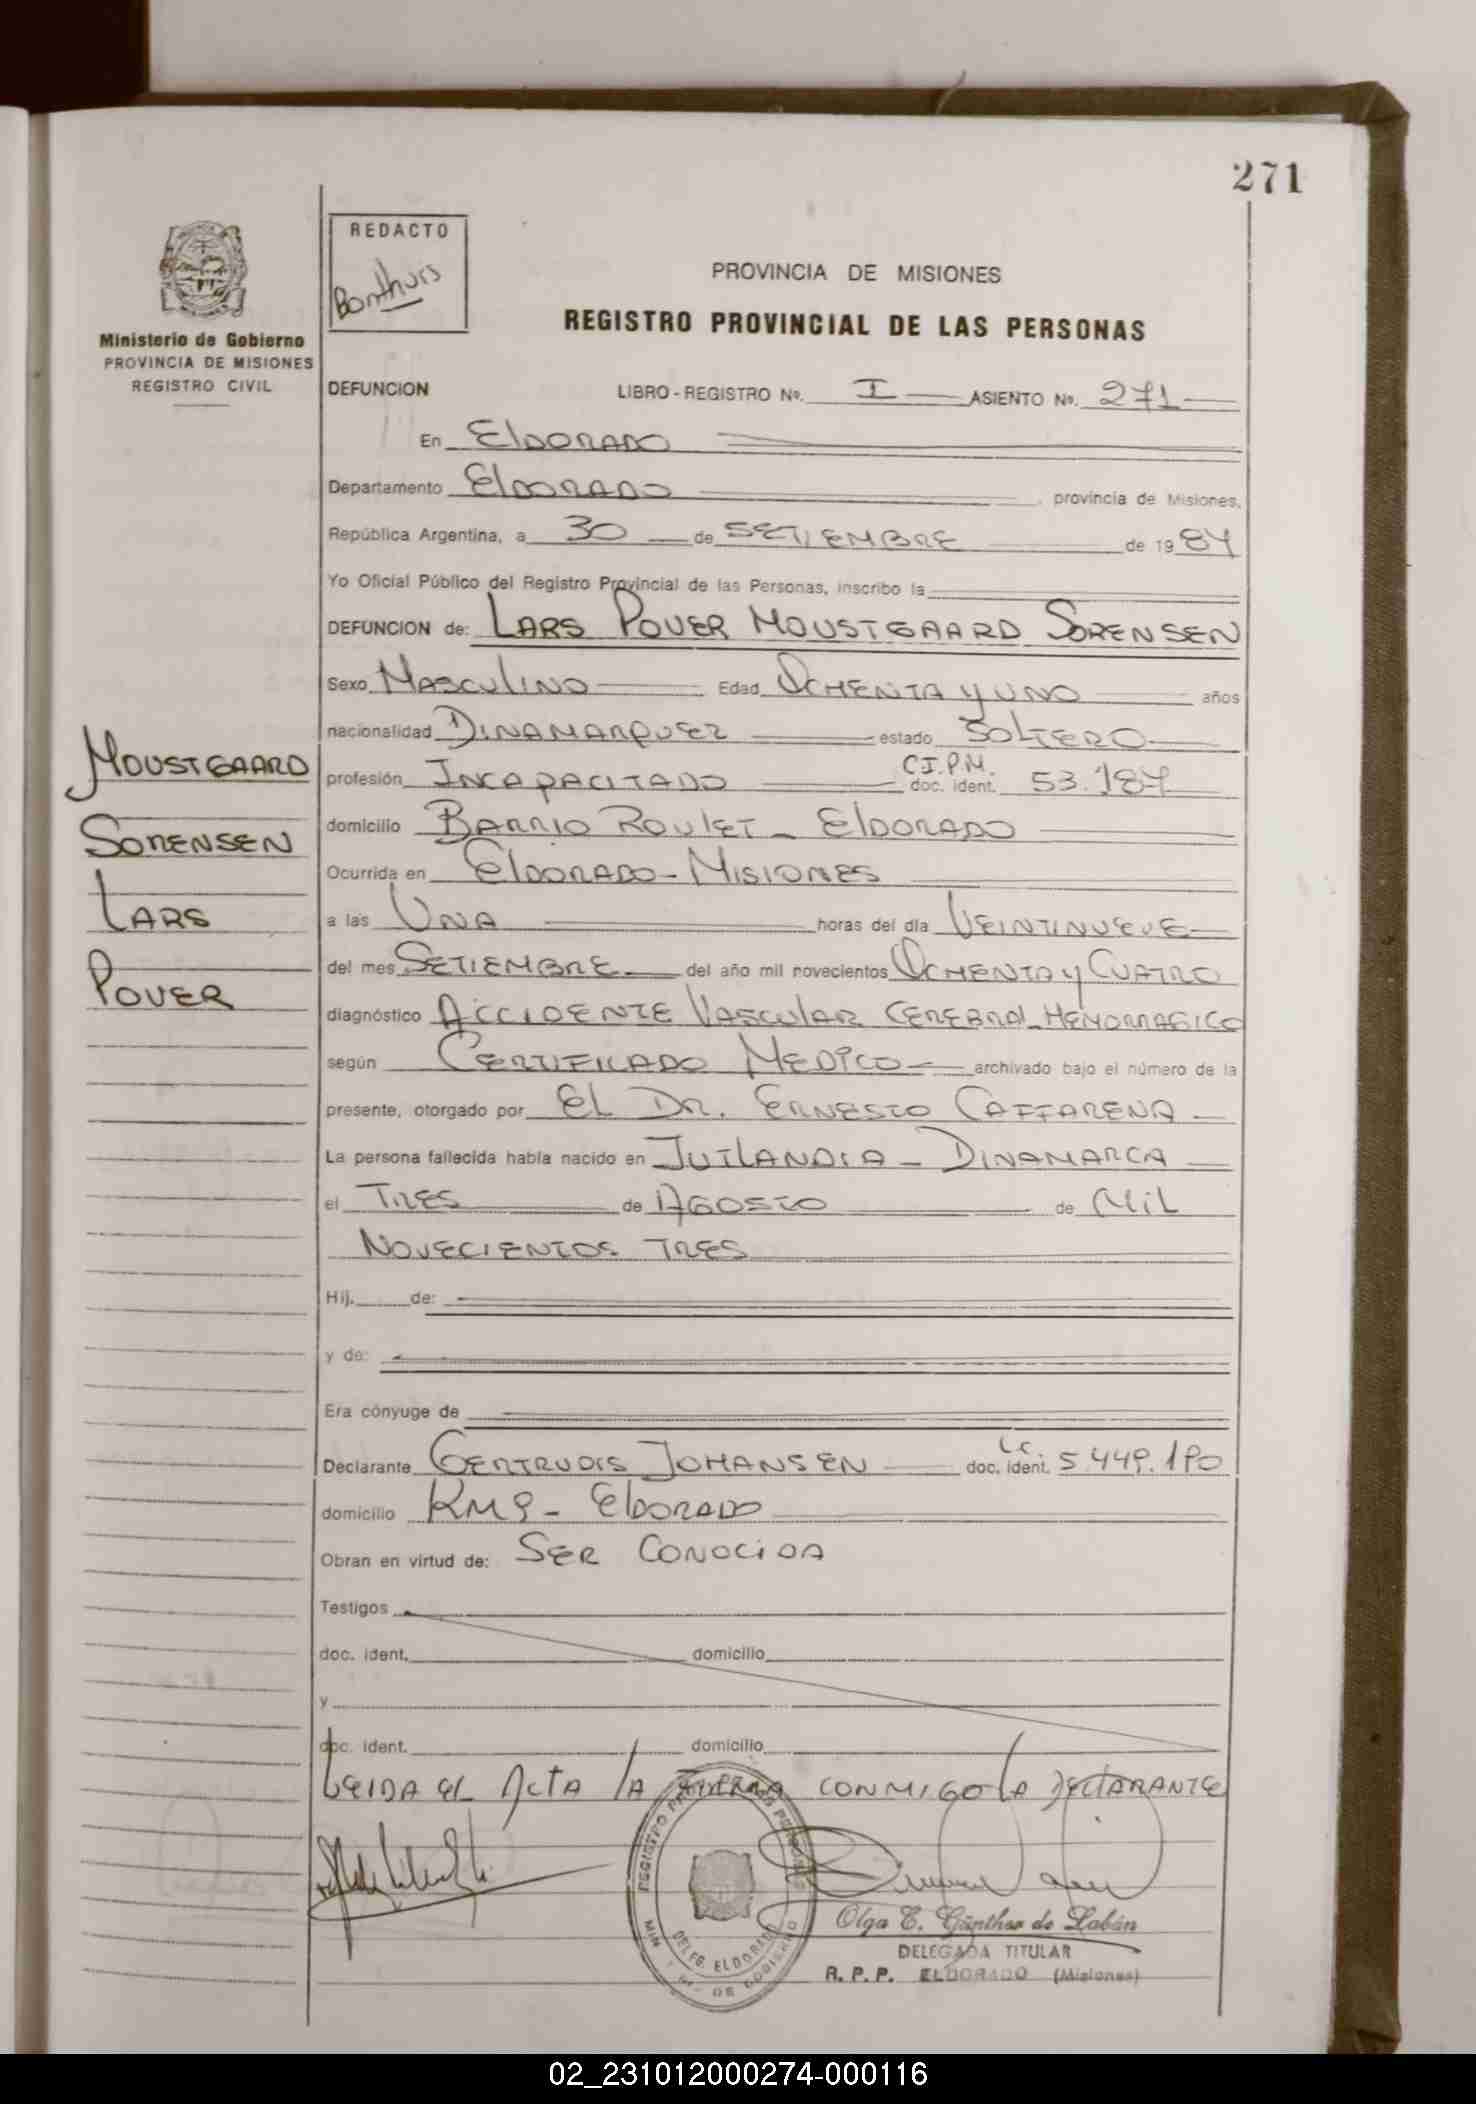 271
REDACTO
Bonthuis
Ministerio de Gobierno
PROVINCIA DE MISIONES
REGISTRO CIVIL
PROVINCIA DE MISIONES
REGISTRO PROVINCIAL DE LAS PERSONAS
DEFUNCION LIBRO - REGISTRO Nº. I ASIENTO Nº. 271
En ELDORADO
Departamento ELDORADO provincia de Misiones,
República Argentina, a 30 de SETIEMBRE de 1984
Yo Oficial Público del Registro Provincial de las Personas, inscribo la
DEFUNCION de: LARS POVER MOUSTGAARD SORENSEN
Sexo MASCULINO Edad OCHENTA y UNO años
nacionalidad DINAMARQUEZ estado SOLTERO
profesión INCAPACITADO C.I.P.M. doc. ident. 53.187
domicilio BARRIO ROULET - ELDORADO
Ocurrida en ELDORADO - MISIONES
a las UNA horas del día VEINTINUEVE
del mes SETIEMBRE del año mil novecientos OCHENTA y CUATRO
diagnóstico ACCIDENTE VASCULAR CEREBRAL HEMORRAGICO
según CERTIFICADO MEDICO archivado bajo el número de la
presente, otorgado por EL DR. ERNESTO CAFFARENA
La persona fallecida había nacido en JUTLANDIA - DINAMARCA
el TRES de AGOSTO de MIL
NOVECIENTOS TRES
Hij. de:
y de:
Era cónyuge de
Declarante GERTRUDIS JOHANSEN L.C. doc. ident. 5.449.190
domicilio KM 9 - ELDORADO
Obran en virtud de: SER CONOCIDA
Testigos
doc. ident. domicilio
y
doc. ident. domicilio
LEIDA EL ACTA LA FIRMA CONMIGO LA DECLARANTE
MOUSTGAARD
SORENSEN
LARS
POVER
DELEG. ELDORADO
Olga E. Günther de Labán
DELEGADA TITULAR
R. P. P. ELDORADO (Misiones)
02_231012000274-000116